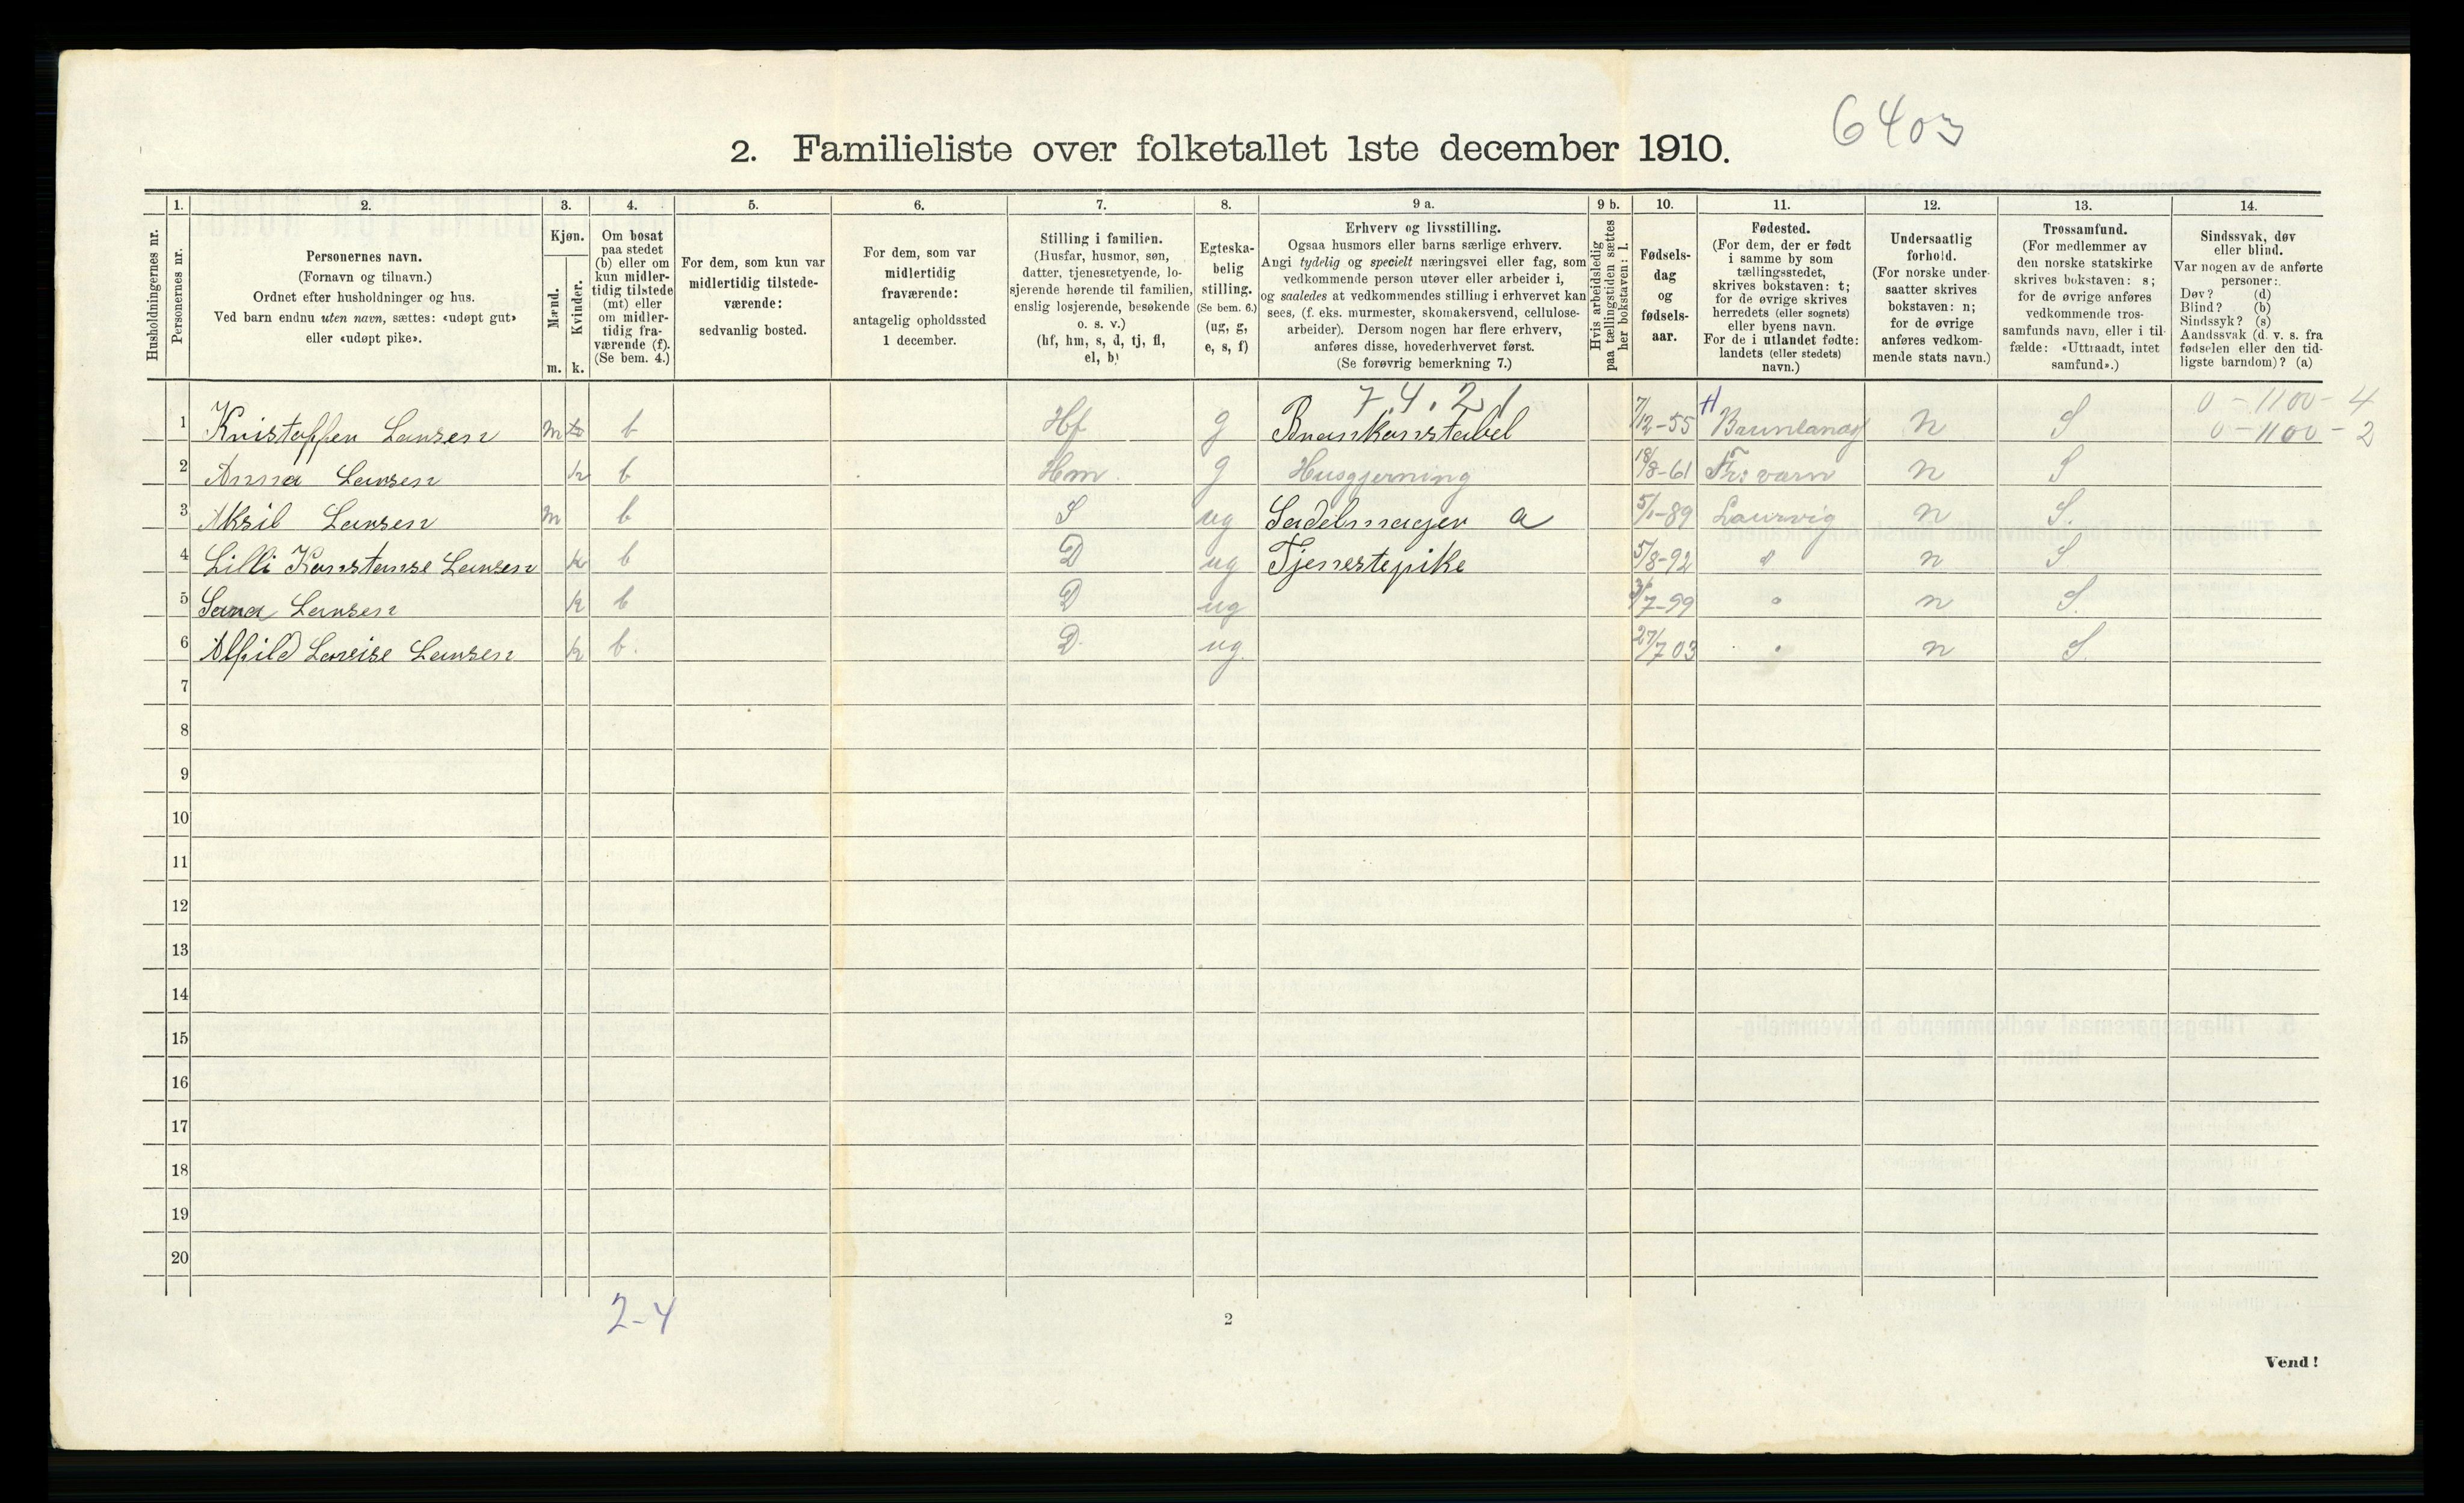 6403
2. Familieliste over folketallet 1ste december 1910.
Husholdningernes nr.
1. Personernes nr.
2. Personernes navn. (Fornavn og tilnavn.) Ordnet efter husholdninger og hus. Ved barn endnu uten navn, sættes: «udøpt gut» eller «udøpt pike».
3. Kjøn. Mænd. m. Kvinder. k.
4. Om bosat paa stedet (b) eller om kun midler- tidig tilstede (mt) eller om midler- tidig fra- værende (f). (Se bem. 4.)
5. For dem, som kun var midlertidig tilstede- værende: sedvanlig bosted.
6. For dem, som var midlertidig fraværende: antagelig opholdssted 1 december.
7. Stilling i familien. (Husfar, husmor, søn, datter, tjenestetyende, lo- sjerende hørende til familien, enslig losjerende, besøkende o. s. v.) (hf, hm, s, d, tj, fl, el, b)
8. Egteska- belig stilling. (Se bem. 6.) (ug, g, e, s, f)
9 a. Erhverv og livsstilling. Ogsaa husmors eller barns særlige erhverv. Angi tydelig og specielt næringsvei eller fag, som vedkommende person utøver eller arbeider i, og saaledes at vedkommendes stilling i erhvervet kan sees, (f. eks. murmester, skomakersvend, cellulose- arbeider). Dersom nogen har flere erhverv, anføres disse, hovederhvervet først. (Se forøvrig bemerkning 7.)
9 b. Hvis arbeidsledig paa tællingstiden sættes her bokstaven: l.
10. Fødsels- dag og fødsels- aar.
11. Fødested. (For dem, der er født i samme by som tællingsstedet, skrives bokstaven: t; for de øvrige skrives herredets (eller sognets) eller byens navn. For de i utlandet fødte: landets (eller stedets) navn.)
12. Undersaatlig forhold. (For norske under- saatter skrives bokstaven: n; for de øvrige anføres vedkom- mende stats navn.)
13. Trossamfund. (For medlemmer av den norske statskirke skrives bokstaven: s; for de øvrige anføres vedkommende tros- samfunds navn, eller i til- fælde: «Uttraadt, intet samfund».)
14. Sindssvak, døv eller blind. Var nogen av de anførte personer: Døv? (d) Blind? (b) Sindssyk? (s) Aandssvak (d. v. s. fra fødselen eller den tid- ligste barndom)? (a)
7.4.21 0 - 1100 - 4
1 Kristoffer Larsen m b Hf g Brankonstabel 7/12-55 Brunlanæs n S 0 - 1100 - 2
2 Anna Larsen k b Hm g Husgjerning 18/8-61 Fr: værn n S
3 Aksil Larsen m b S ug Sadelmager a 5/1-89 Laurvig n S.
4 Lilli Konstanse Larsen k b D ug Tjenestepike 5/8-92 " n S
5 Sara Larsen k b D ug 3/7-99 " n S.
6 Alfild Lovise Larsen k b. D. ug. 27/7 03 " n S.
7
8
9
10
11
12
13
14
15
16
17
18
19
20
2-4
2
Vend!